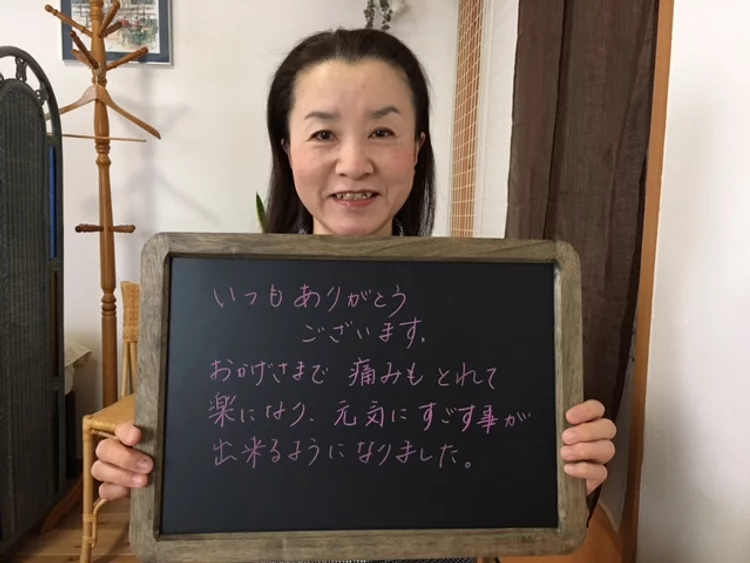 いつもありがとう
ございます.
おかげさまで 痛みもとれて
楽になり、元気にすごす事が
出来るようになりました。